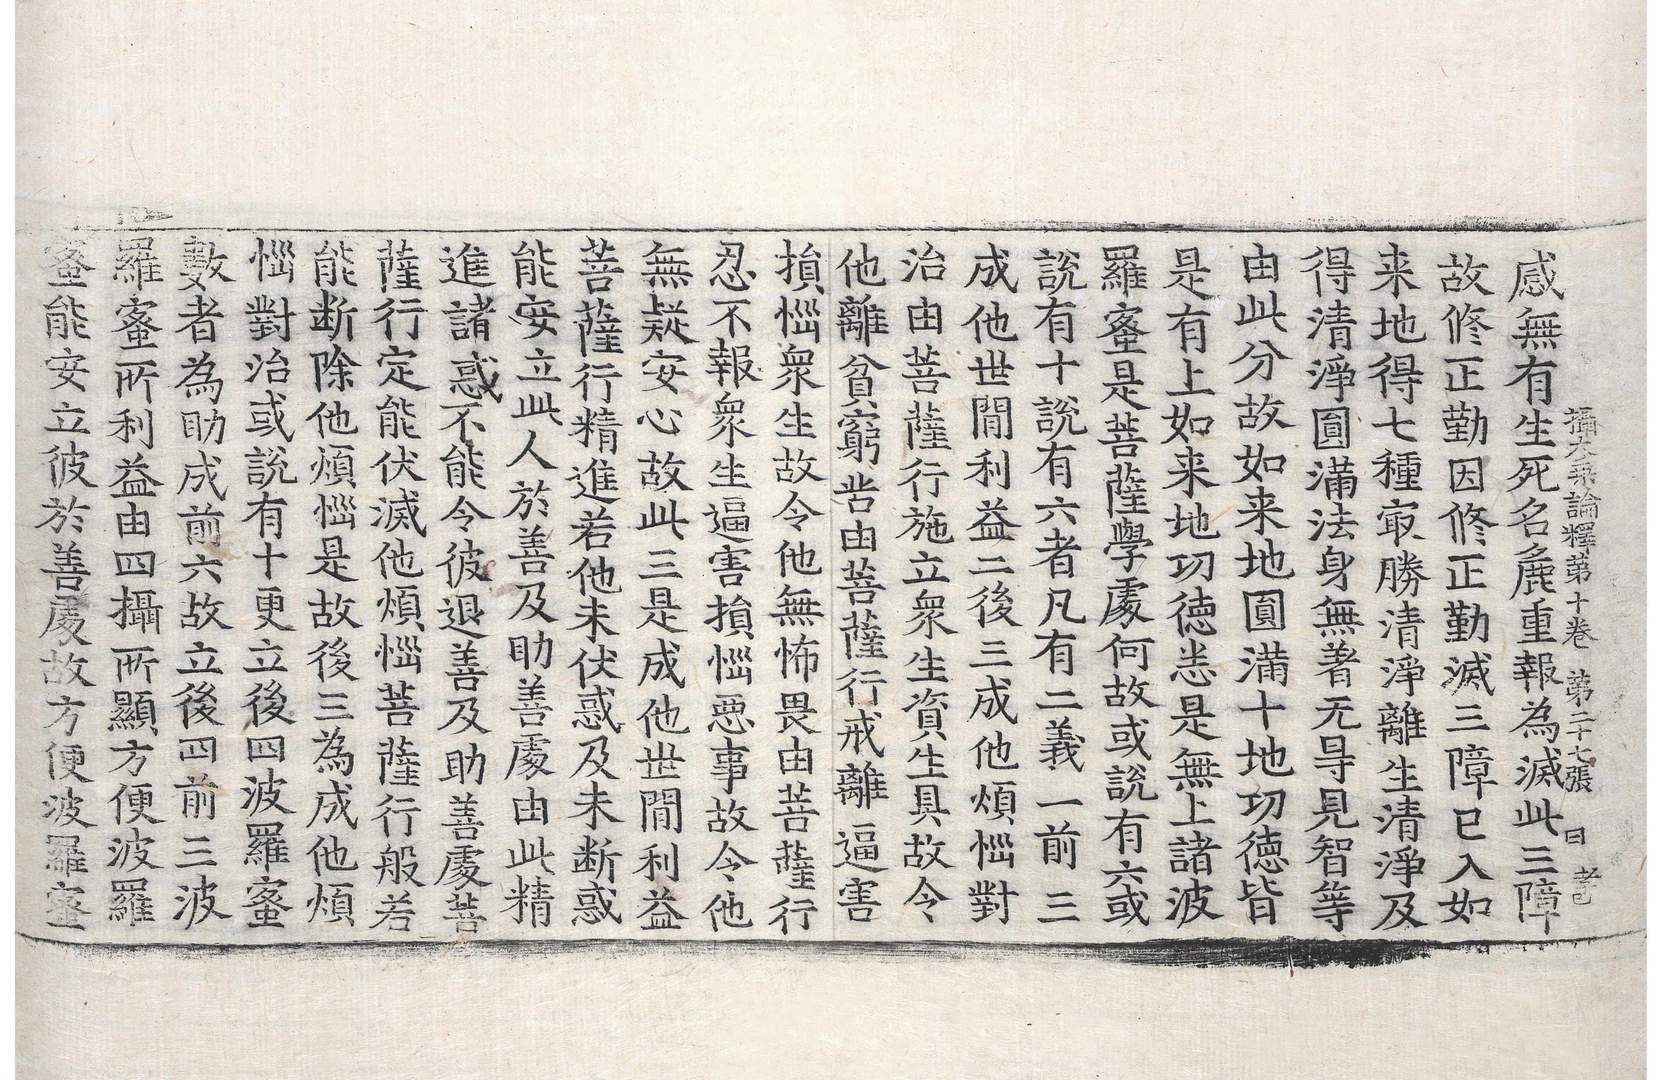 攝大乗論釋第十卷　第二十七張　曰
感無有生死名麁重報為滅此三障
故修正勤因修正勤滅三障已入如
来地得七種㝡勝清淨離生清淨及
得清淨圓滿法身無著无㝵見智等
由此分故如来地圓滿十地功徳皆
是有上如来地功徳悉是無上諸波
羅蜜是菩薩學處何故或說有六或
說有十說有六者凡有二義一前三
成他世閒利益二後三成他煩惱對
治由菩薩行施立衆生資生具故令
他離貧窮呰由菩薩行戒離逼害
損惱衆生故令他無怖畏由菩薩行
忍不報衆生逼害損惱惡事故令他
無疑安心故此三是成他世閒利益
菩薩行精進若他未伏惑及未断惑
能安立此人於善及助善處由此精
進諸惑不能令彼退善及助善處菩
薩行定能伏滅他煩惱菩薩行般若
能断除他煩惱是故後三為成他煩
惱對治或說有十更立後四波羅蜜
數者為助成前六故立後四前三波
羅蜜所利益由四攝所顯方便波羅
蜜能安立彼於善處故方便波羅蜜